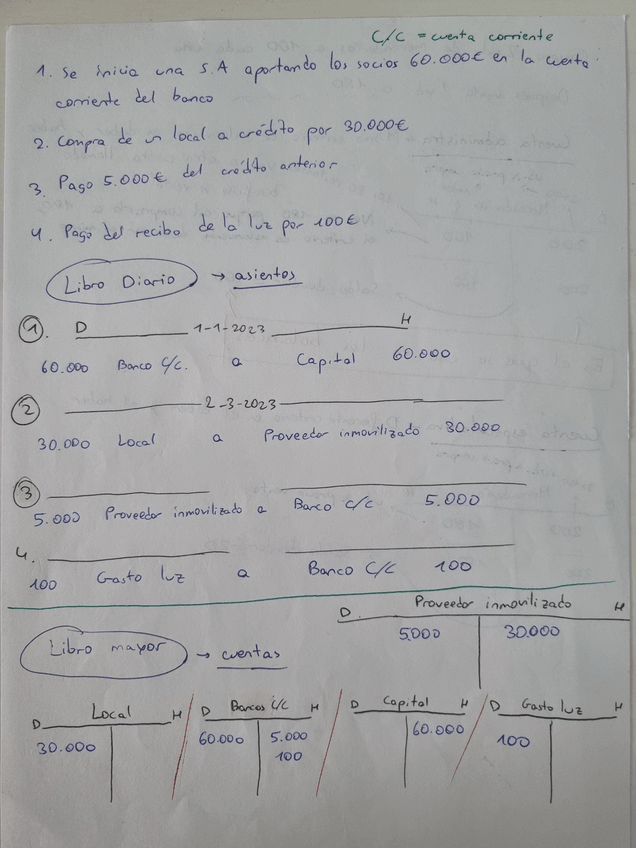 C/C = cuenta corriente
1. Se inicia una S.A aportando los socios 60.000€ en la cuenta
corriente del banco
2. Compra de un local a crédito por 30.000€
3. Pago 5.000€ del crédito anterior
4. Pago del recibo de la luz por 100€
Libro Diario → asientos
1. D 1-1-2023 H
60.000 Banco C/C. a Capital 60.000
2 2-3-2023
30.000 Local a Proveedor inmovilizado 30.000
3
5.000 Proveedor inmovilizado a Banco C/C 5.000
4.
100 Gasto luz a Banco C/C 100
D. Proveedor inmovilizado H
5.000 30.000
Libro mayor → cuentas
D Local H / D Bancos C/C H / D Capital H / D Gasto luz H
30.000 60.000 5.000 60.000 100
100